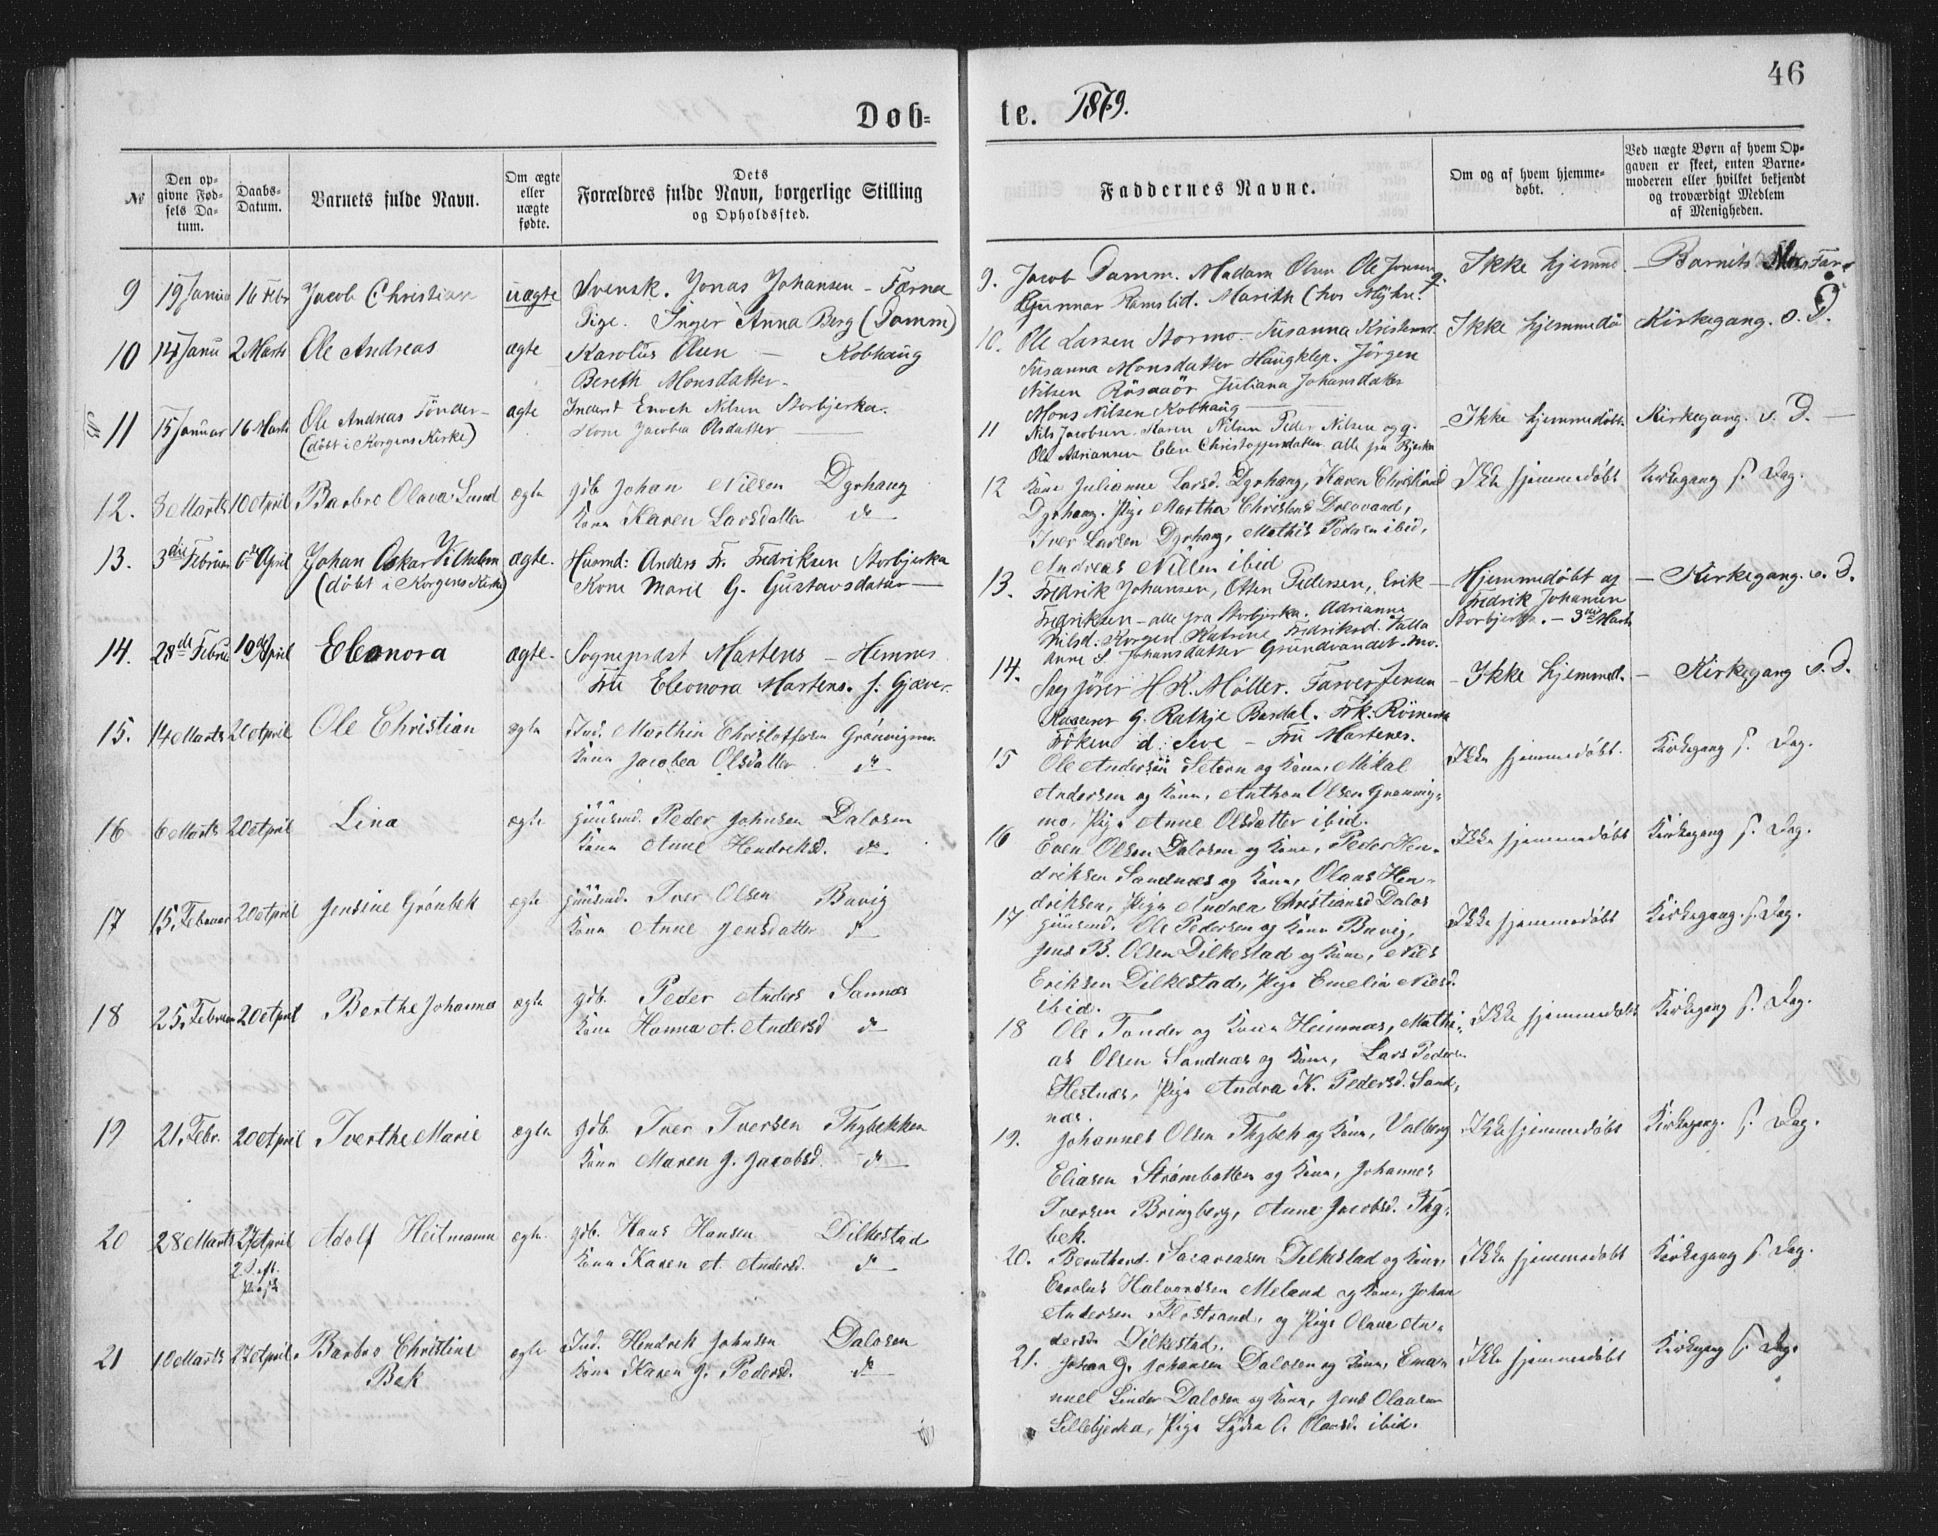 46
Døb=
te. 1879.
№
Den op-
givne Fød-
sels Da-
tum.
Daabs-
Datum.
Barnets fulde Navn.
Om ægte
eller
uægte
fødte.
Dets
Forældres fulde Navn, borgerlige Stilling
og Opholdssted.
Faddernes Navne.
Om og af hvem hjemme-
døbt.
Ved uægte Børn af hvem Op-
gaven er skeet, enten Barne-
moderen eller hvilket bekjendt
og troværdigt Medlem
af Menigheden.
9 19 Januar 16 Febr Jacob Christian uægte Svensk. Jonas Johansen - Færna
Pige. Inger Anna Berg (Damm)
10 14 Janu 2 Marts Ole Andreas ægte Karolus Olsen - Kobhaug
Bereth Monsdatter
11 15 Januar 16 Marts Ole Andreas Tønder ægte Inderst Enoch Nilsen Storbjerka.
(døbt i Korgens Kirke) Kone Jacobia Olsdatter
12. 3 Marts 10 April Barbro Olava Lund ægte gdb Johan Nilsen Dyrhaug
Kone Karen Larsdatter do
13. 3die Februar 6te April Johan Oskar Vilhelm ægte. Huusmd: Anders Fr. Fredriksen Storbjerka
(døbt i Korgens Kirke) Kone Marie G. Gustavsdatter
14. 28de Februar 19de April Eleonora ægte. Sogneprest Martens - Hemnes
Fru Eleonora Martens. f. Gjæver.
15. 14 Marts 20 April Ole Christian ægte Ind. Marthin Christoffersen Grønvigmo
Kone Jacobea Olsdatter do
16 6 Marts 20 April Lina ægte Huusmd. Peder Johnsen Dalosen
Kone Anne Hendriksd. do
17 15. Februar 20 April Jensine Grønbek ægte Huusmd. Iver Olsen Buvig
Kone Anne Jensdatter do
18 25. Februar 20 April Berthe Johanna ægte gdb. Peder Anders Sannæs
Kone Hanna A. Andersd do
19 21. Febr. 20 April Iverthe Marie ægte gdb. Iver Iversen Thybekken
Kone Maren J. Jacobsd. do
20 28 Marts 27 April Adolf Heitmann ægte. gdb. Hans Hansen Dilkestad
2. S. eft. Paaske Kone Karen A. Andersd. do
21 10 Marts 27 April Barbro Christine ægte Ind. Hendrik Johnsen Dalosen
Bek Kone Karen J. Pedersd. do
9. Jacob Damm. Madam Olsen Ole Jonsen Ikke hjemme - Barnets Far
Gunnar Ramslid. Marith (hos Myhre.
10. Ole Larsen Stormo. Susanna Kristensd. Ikke hjemmedø Kirkegang. s. D.
Susanna Monsdatter Haugklep. Jörgen
Nilsen Rösaaör Juliana Johansdatter
Mons Nilsen Kobhaug
11 Nils Jacobsen. Karen Nilsen Peder Nilsen og g. Ikke hjemmedøbt. Kirkegang. s. D.
Ole Adriansen Elen Christoffersdatter alle fra Bjerka
12 Kone Julianne Larsd. Dyrhaug, Karen Christiansd Ikke hjemmedøbt Kirkegang s. Dag.
Dyrhaug. Pige Martha Christensd Drevvand,
Iver Larsen Dyrhaug, Mathis Pedersen ibid,
Andreas Nilsen ibid
13. Fredrik Johansen, Otten Pedersen, Erik - Hjemmedøbt af - Kirkegang. s. D.
Fredriksen - alle fra Storbjerka. Adrianne Fredrik Johansen
Nilsd. Korgen. Katrine Fredriksd. Valla Storbjerka. - 3die Marts
Anne S Johansdatter Grundvandet. mo.
14. Sagfører H K. Møller. Farver Jensen - Ikke hjemmed. - Kirkegang s. D.
Kasserer G. Rathje Bardal. Frk. Römer
Fröken d: Seve - Fru Martenes.
15 Ole Andersen Setern og Kone, Mikal Ikke hjemmedøbt. Kirkegang s. Dag.
Andersen og Kone, Anthon Olsen Grønvig-
mo, Pige Anne Olsdatter ibid.
16 Even Olsen Dalosen og Kone, Peder Hen- Ikke hjemmedøbt Kirkegang s. Dag.
driksen Sandnæs og Kone, Olaus Hen-
driksen, Pige Andrea Christiansd Dalos
17 Huusmd. Ole Pedersen og Kone Buvig, Ikke hjemmedøbt Kirkegang. s. Dag.
Jens B. Olsen Dilkestad og Kone, Nils
Eriksen Dilkestad, Pige Emelie Nilsd.
ibid.
18 Ole Tønder og Kone Hemnæs, Mathi- Ikke hjemmedøbt Kirkegang s. Dag.
as Olsen Sandnæs og Kone, Lars Pedersen
Hestnæs, Pige Andrea K. Pedersd. Sand-
næs.
19. Johannes Olsen Thybek og Kone, Valberg Ikke hjemmedøbt Kirkegang. s. Dag.
Eliasen Strømbotten og Kone, Johannes
Iversen Bringberg, Anne Jacobsd. Thy-
bek.
20. Bernthard. Sacariasen Dilkestad og Kone, Ikke hjemmedøbt Kirkegang s. Dag.
Carolus Halvordsen Meland og Kone, Johan
Andersen Flostrand, og Pige Olava An-
dersdr Dilkestad.
21. Johan G. Johansen Dalosen og Kone, Ema- Ikke hjemmedøbt Kirkegang s. Dag.
nuel Linder Dalosen og Kone, Jens Olausen
Lillebjerka, Pige Lydia O. Olausd. ibid.